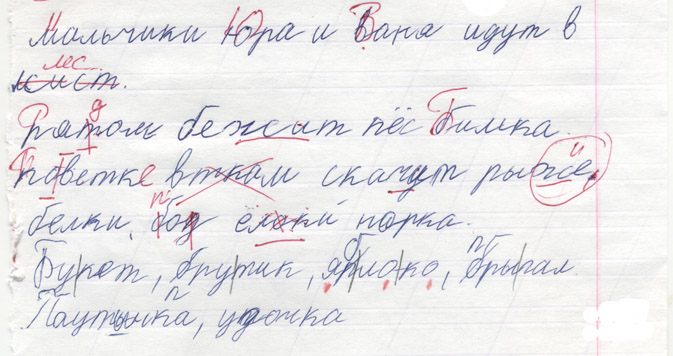 Мальчики Юра и Ваня идут в
лес
лист.
Ратом бежит пёс Бимка.
Поветке вткам скачут рыжие
белки. под ёлкой норка.
Букет, брутик, яплоко, брыгал
Паутинка, удочка